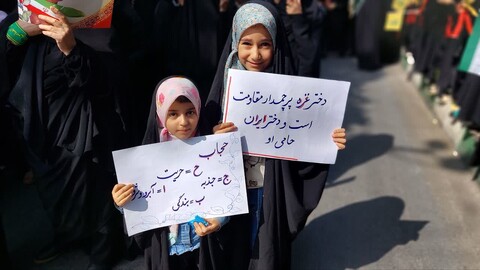 دختر غزه پرچمدار مقاومت
است و دختر ایران
حامی او
حجاب
ح = حریت
ج = جذبه
ا = آبرو
ب = بندگی